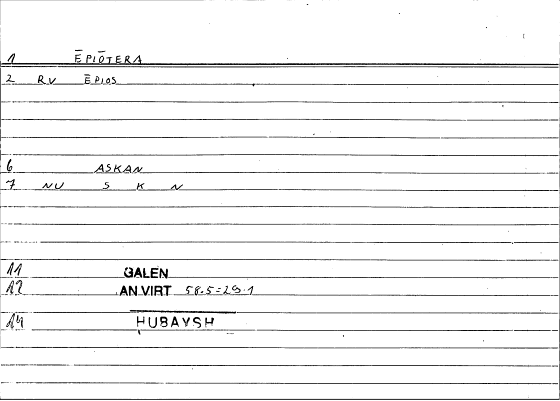 1 ĒPIŌTERA
2 RV ĒPIOS
6 ASKAN
7 NU S K N
11 GALEN
12 AN.VIRT 58.5=29.1
14 HUBAYSH